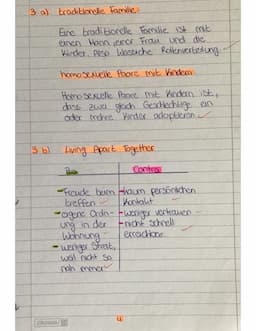 3 a) traditionelle Familie:
Eine traditionelle Familie ist mit
einen Mann, einer Frau und die
Kinder. Also klassische Rollenverteilung.
homosexuelle Paare mit Kindern
Homosexuelle Paare mit Kindern ist,
dass zwei gleich Geschlechtige ein
oder mehre Kinder adoptieren.
3 b) Living Apart Together
Pro
Contra
- Freude beim
treffen
- eigene Ordn-
ung in der
Wohnung
- weniger Streit,
weil nicht so
nah immer
- kaum persönlichen
Kontakt
- weniger vertrauen
- nicht schnell
erreichbar